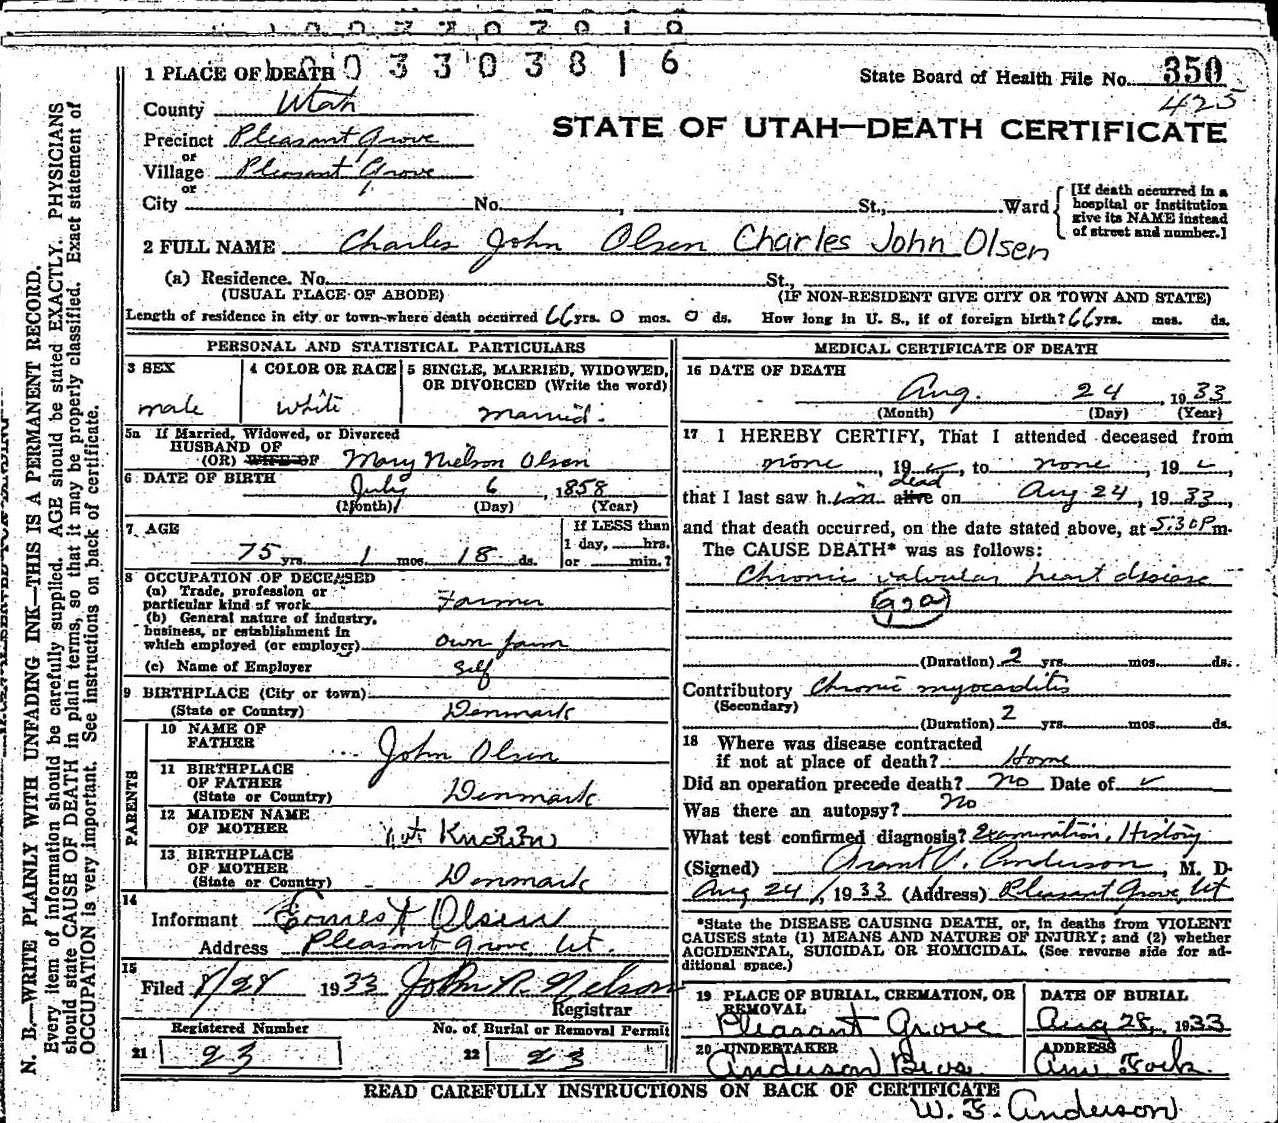 1 0 0 3 3 0 3 8 1 6
1 PLACE OF DEATH
State Board of Health File No. 350
425
County Utah
STATE OF UTAH—DEATH CERTIFICATE
Precinct Pleasant Grove
or
Village Pleasant Grove
or
City No. , St., Ward
[If death occurred in a hospital or institution give its NAME instead of street and number.]
2 FULL NAME Charles John Olsen Charles John Olsen
(a) Residence. No. St.,
(USUAL PLACE OF ABODE) (IF NON-RESIDENT GIVE CITY OR TOWN AND STATE)
Length of residence in city or town where death occurred 66 yrs. 0 mos. 0 ds. How long in U. S., if of foreign birth? 66 yrs. mos. ds.
PERSONAL AND STATISTICAL PARTICULARS
3 SEX
male
4 COLOR OR RACE
White
5 SINGLE, MARRIED, WIDOWED,
OR DIVORCED (Write the word)
Married.
5a If Married, Widowed, or Divorced
HUSBAND OF
(OR) WIFE OF Mary Nielson Olsen
6 DATE OF BIRTH July 6, 1858
(Month) (Day) (Year)
7 AGE
75 yrs. 1 mos. 18 ds.
If LESS than
1 day, hrs.
or min.?
8 OCCUPATION OF DECEASED
(a) Trade, profession or
particular kind of work Farmer
(b) General nature of industry,
business, or establishment in
which employed (or employer) own farm
(c) Name of Employer Self
9 BIRTHPLACE (City or town)
(State or Country) Denmark
PARENTS
10 NAME OF
FATHER John Olsen
11 BIRTHPLACE
OF FATHER
(State or Country) Denmark
12 MAIDEN NAME
OF MOTHER not Known
13 BIRTHPLACE
OF MOTHER
(State or Country) Denmark
14
Informant Ernest Olsen
Address Pleasant Grove, Ut.
15
Filed 8/28 1933 John R. Nelson
Registrar
Registered Number No. of Burial or Removal Permit
21 23 22 23
MEDICAL CERTIFICATE OF DEATH
16 DATE OF DEATH
Aug. 24, 1933
(Month) (Day) (Year)
17 I HEREBY CERTIFY, That I attended deceased from
none, 19 , to none, 19
dead
that I last saw him alive on Aug 24, 1933,
and that death occurred, on the date stated above, at 5.30 P m.
The CAUSE DEATH* was as follows:
Chronic valvular heart disease
92a
(Duration) 2 yrs. mos. ds.
Contributory Chronic myocarditis
(Secondary)
(Duration) 2 yrs. mos. ds.
18 Where was disease contracted
if not at place of death? Home
Did an operation precede death? No Date of ✓
Was there an autopsy? No
What test confirmed diagnosis? Examination, History
(Signed) Grant Y. Anderson, M. D.
Aug 24, 1933 (Address) Pleasant Grove, Ut
*State the DISEASE CAUSING DEATH, or, in deaths from VIOLENT
CAUSES state (1) MEANS AND NATURE OF INJURY; and (2) whether
ACCIDENTAL, SUICIDAL OR HOMICIDAL. (See reverse side for ad-
ditional space.)
19 PLACE OF BURIAL, CREMATION, OR
REMOVAL
Pleasant Grove
DATE OF BURIAL
Aug 28, 1933
20 UNDERTAKER
Anderson Bros
ADDRESS
Am. Fork.
READ CAREFULLY INSTRUCTIONS ON BACK OF CERTIFICATE
W. F. Anderson
N. B.—WRITE PLAINLY WITH UNFADING INK—THIS IS A PERMANENT RECORD.
Every item of information should be carefully supplied. AGE should be stated EXACTLY. PHYSICIANS
should state CAUSE OF DEATH in plain terms, so that it may be properly classified. Exact statement of
OCCUPATION is very important. See instructions on back of certificate.